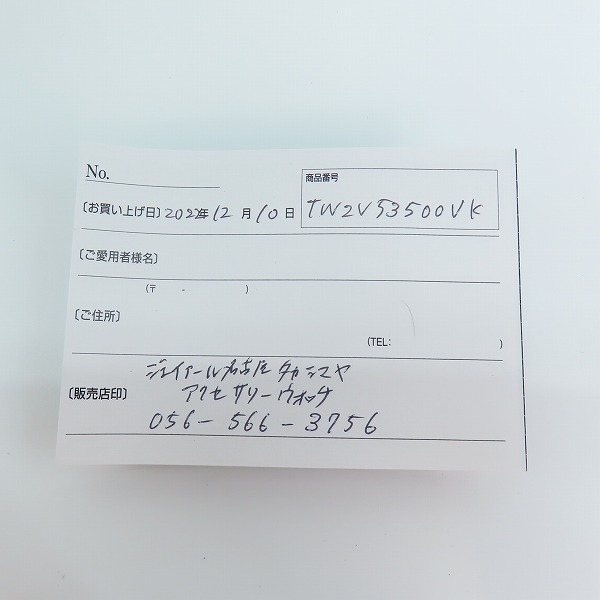 No.
商品番号
TW2V53500VK
〔お買い上げ日〕2022年12月10日
〔ご愛用者様名〕
(〒 - )
〔ご住所〕
(TEL: )
ジェイアール名古屋タカシマヤ
〔販売店印〕 アクセサリーウォッチ
056-566-3756